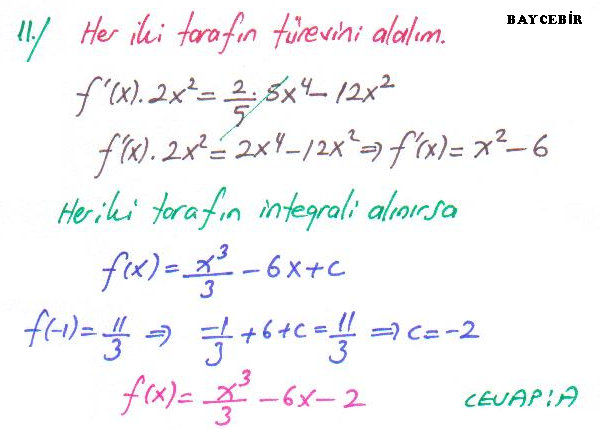 BAYCEBİR
11./ Her iki tarafın türevini alalım.
f'(x). 2x² = 2/5 . 5x⁴ - 12x²
f'(x). 2x² = 2x⁴ - 12x² ⇒ f'(x) = x² - 6
Her iki tarafın integrali alınırsa
f(x) = x³/3 - 6x + c
f(-1) = 11/3 ⇒ -1/3 + 6 + c = 11/3 ⇒ c = -2
f(x) = x³/3 - 6x - 2
CEVAP: A